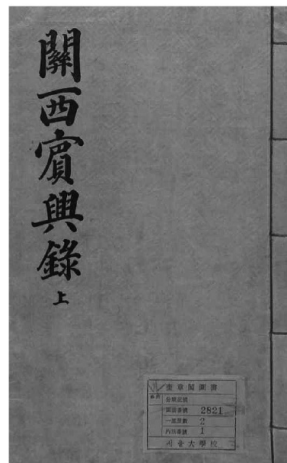 關西賓興錄 上
奎章閣圖書
2821
2
1
서울大學校